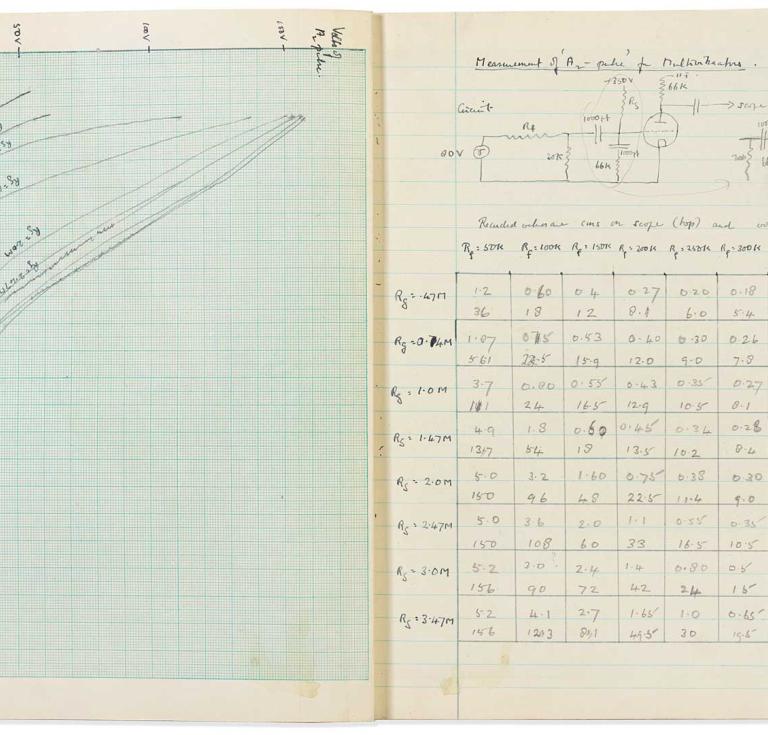 50V
100V
150V
Volts of
A₂ pulse.
Rg = 2.0M
Rg = 2.47M
Measurement of 'A₂ - pulse' for Multivibrators.
Circuit
+350V
66K
→ scope
Rf
1000pf
Rg
80V
20K
66K
100pf
Recorded values are cms on scope (top) and
Rf = 50K Rf = 100K Rf = 150K Rf = 200K Rf = 250K Rf = 300K
Rg = .47M 1.2 0.60 0.4 0.27 0.20 0.18
36 18 12 8.1 6.0 5.4
Rg = 0.74M 1.87 0.75 0.53 0.40 0.30 0.26
561 22.5 15.9 12.0 9.0 7.8
Rg = 1.0M 3.7 0.80 0.55 0.43 0.35 0.27
111 24 16.5 12.9 10.5 8.1
Rg = 1.47M 4.9 1.8 0.60 0.45 0.34 0.28
137 54 18 13.5 10.2 8.4
Rg = 2.0M 5.0 3.2 1.60 0.75 0.38 0.30
150 96 48 22.5 11.4 9.0
Rg = 2.47M 5.0 3.6 2.0 1.1 0.55 0.35
150 108 60 33 16.5 10.5
Rg = 3.0M 5.2 3.0? 2.4 1.4 0.80 0.5
156 90 72 42 24 15
Rg = 3.47M 5.2 4.1 2.7 1.65 1.0 0.65
156 123 81 49.5 30 19.5